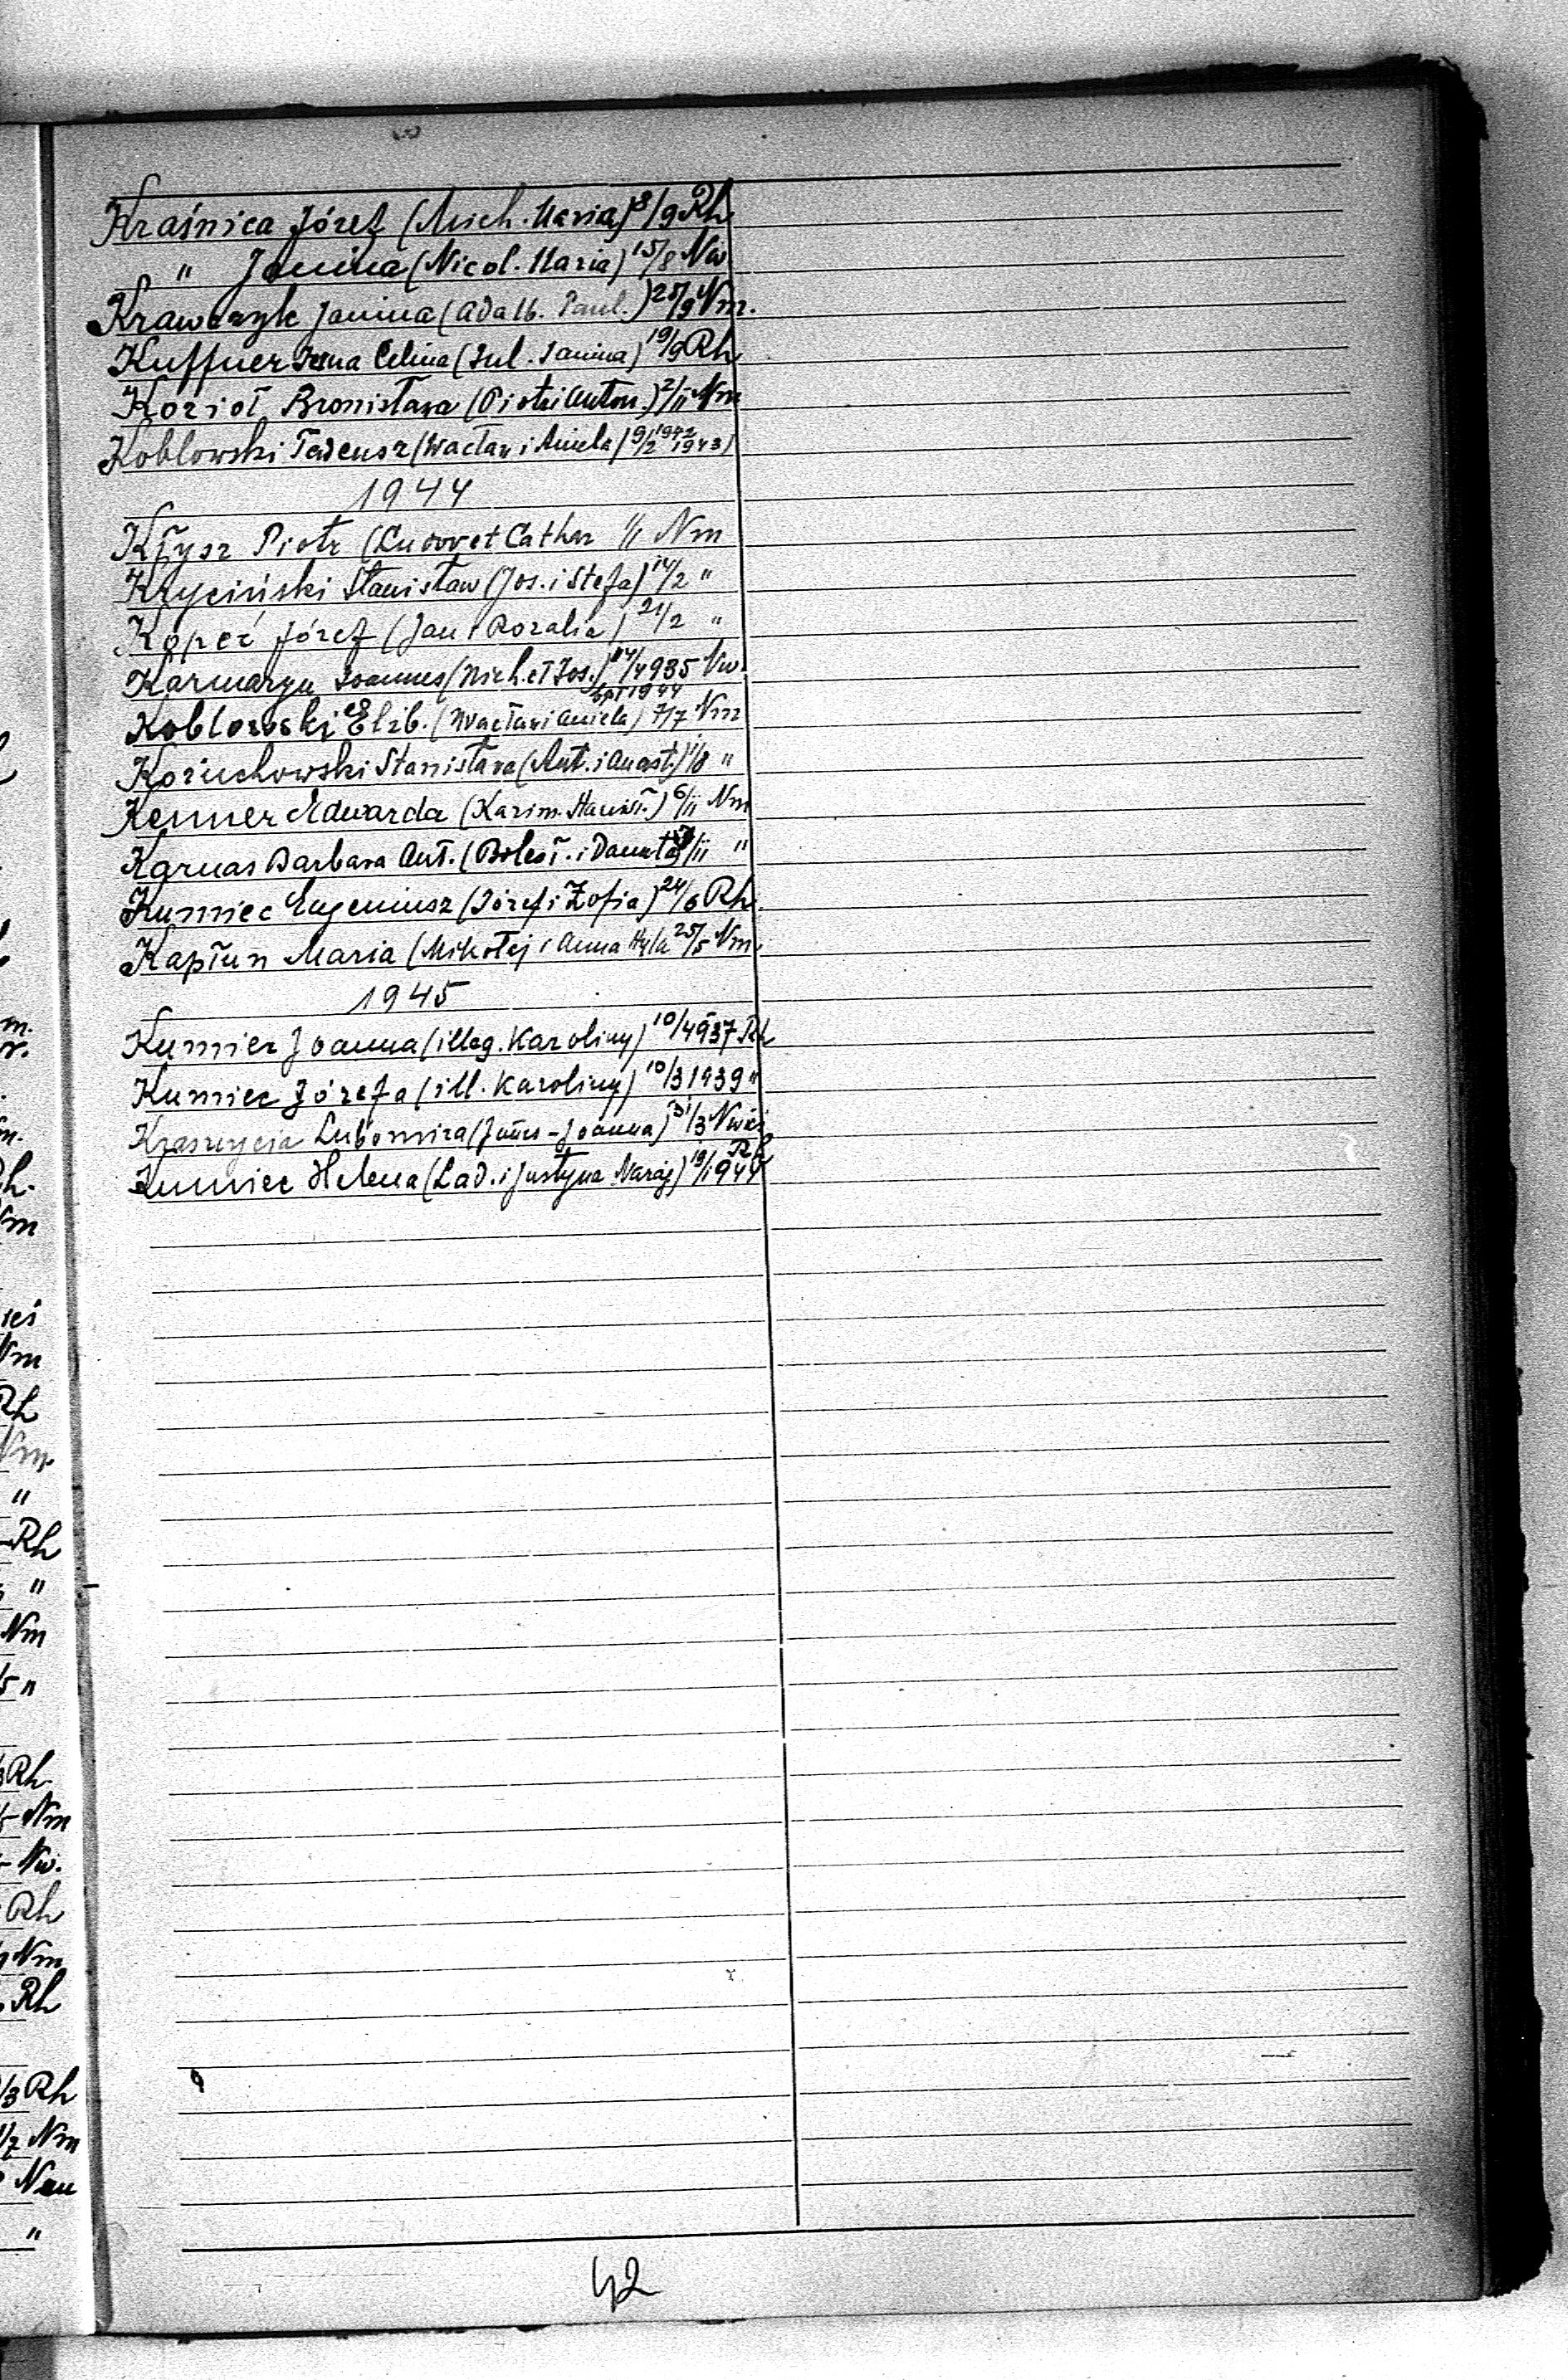 Kraśnica Józef (Mich. Maria) 3/9 Rh
" Janina (Nicol. Maria) 15/8 Nw
Krawczyk Janina (Adalb. Paul.) 25/9 Nm.
Kuffner Irena Celina (Jul. Janina) 19/9 Rh
Kozioł Bronisława (Piotr i Anton.) 2/11 Nm
Koblowski Tadeusz (Wacław i Aniela) 9/2 1942 1943)
1944
Kłysz Piotr (Ludov et Cathar 1/1 Nm
Krzyciński Stanisław (Jos. i Stefa) 14/2 "
Kopeć Józef (Jan i Rozalia) 21/2 "
Karmazyn Joannes (Mich. et Jos.) 14/4 935 Nw.
bpt 1944
Koblowski Elżb. (Wacław i Aniela) 7/7 Nm
Kożuchowski Stanisława (Ant. i Anast.) 1/8 "
Kenner Edwarda (Kazim. Stanisł.) 6/11 Nm
Karnas Barbara Ant. (Bolesł. i Danuta) /11 "
Kumiec Eugeniusz (Józef i Zofia) 24/6 Rh.
Kapłun Maria (Mikołaj i Anna Hyla 25/5 Nm.
1945
Kumiec Joanna (illeg. Karoliny) 10/4 937 Rh
Kumiec Józefa (ill. Karoliny) 10/3 1939 "
Kraszycia Lubomira (James - Joanna) 31/3 Nwieś
Rh
Kumiec Helena (Lad. i Justyna Naraj) 19/1 944
42
m.
r.
n.
Rh.
Nm
ieś
Nm
Rh
Nm.
"
Rh
"
Nm
/5 "
/3 Rh.
Nm
Nw.
Rh
Nm
Rh
/3 Rh
/7 Nm
"